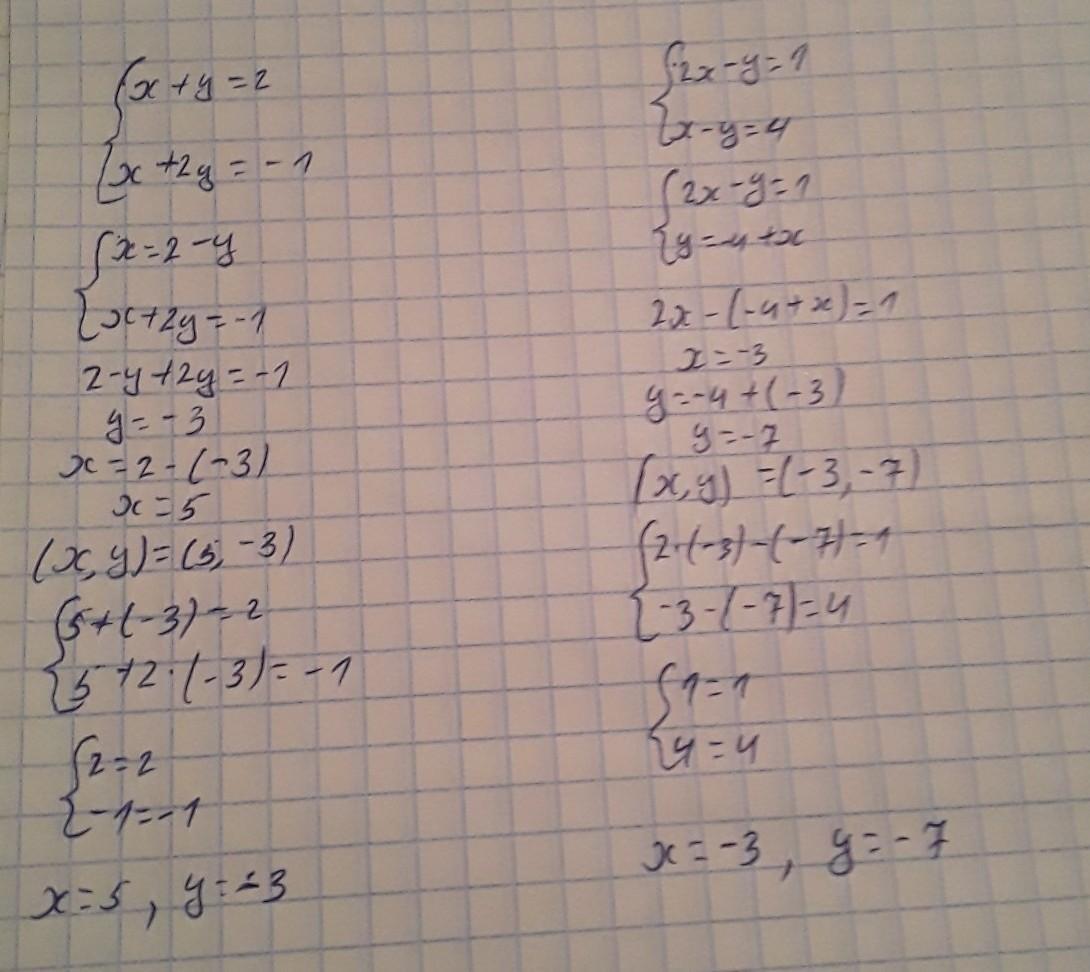 {x+y=2
{x+2y=-1
{x=2-y
{x+2y=-1
2-y+2y=-1
y=-3
x=2-(-3)
x=5
(x,y)=(5,-3)
{5+(-3)=2
{5+2·(-3)=-1
{2=2
{-1=-1
x=5, y=-3
{2x-y=1
{x-y=4
{2x-y=1
{y=-4+x
2x-(-4+x)=1
x=-3
y=-4+(-3)
y=-7
(x,y)=(-3,-7)
{2·(-3)-(-7)=1
{-3-(-7)=4
{1=1
{4=4
x=-3, y=-7